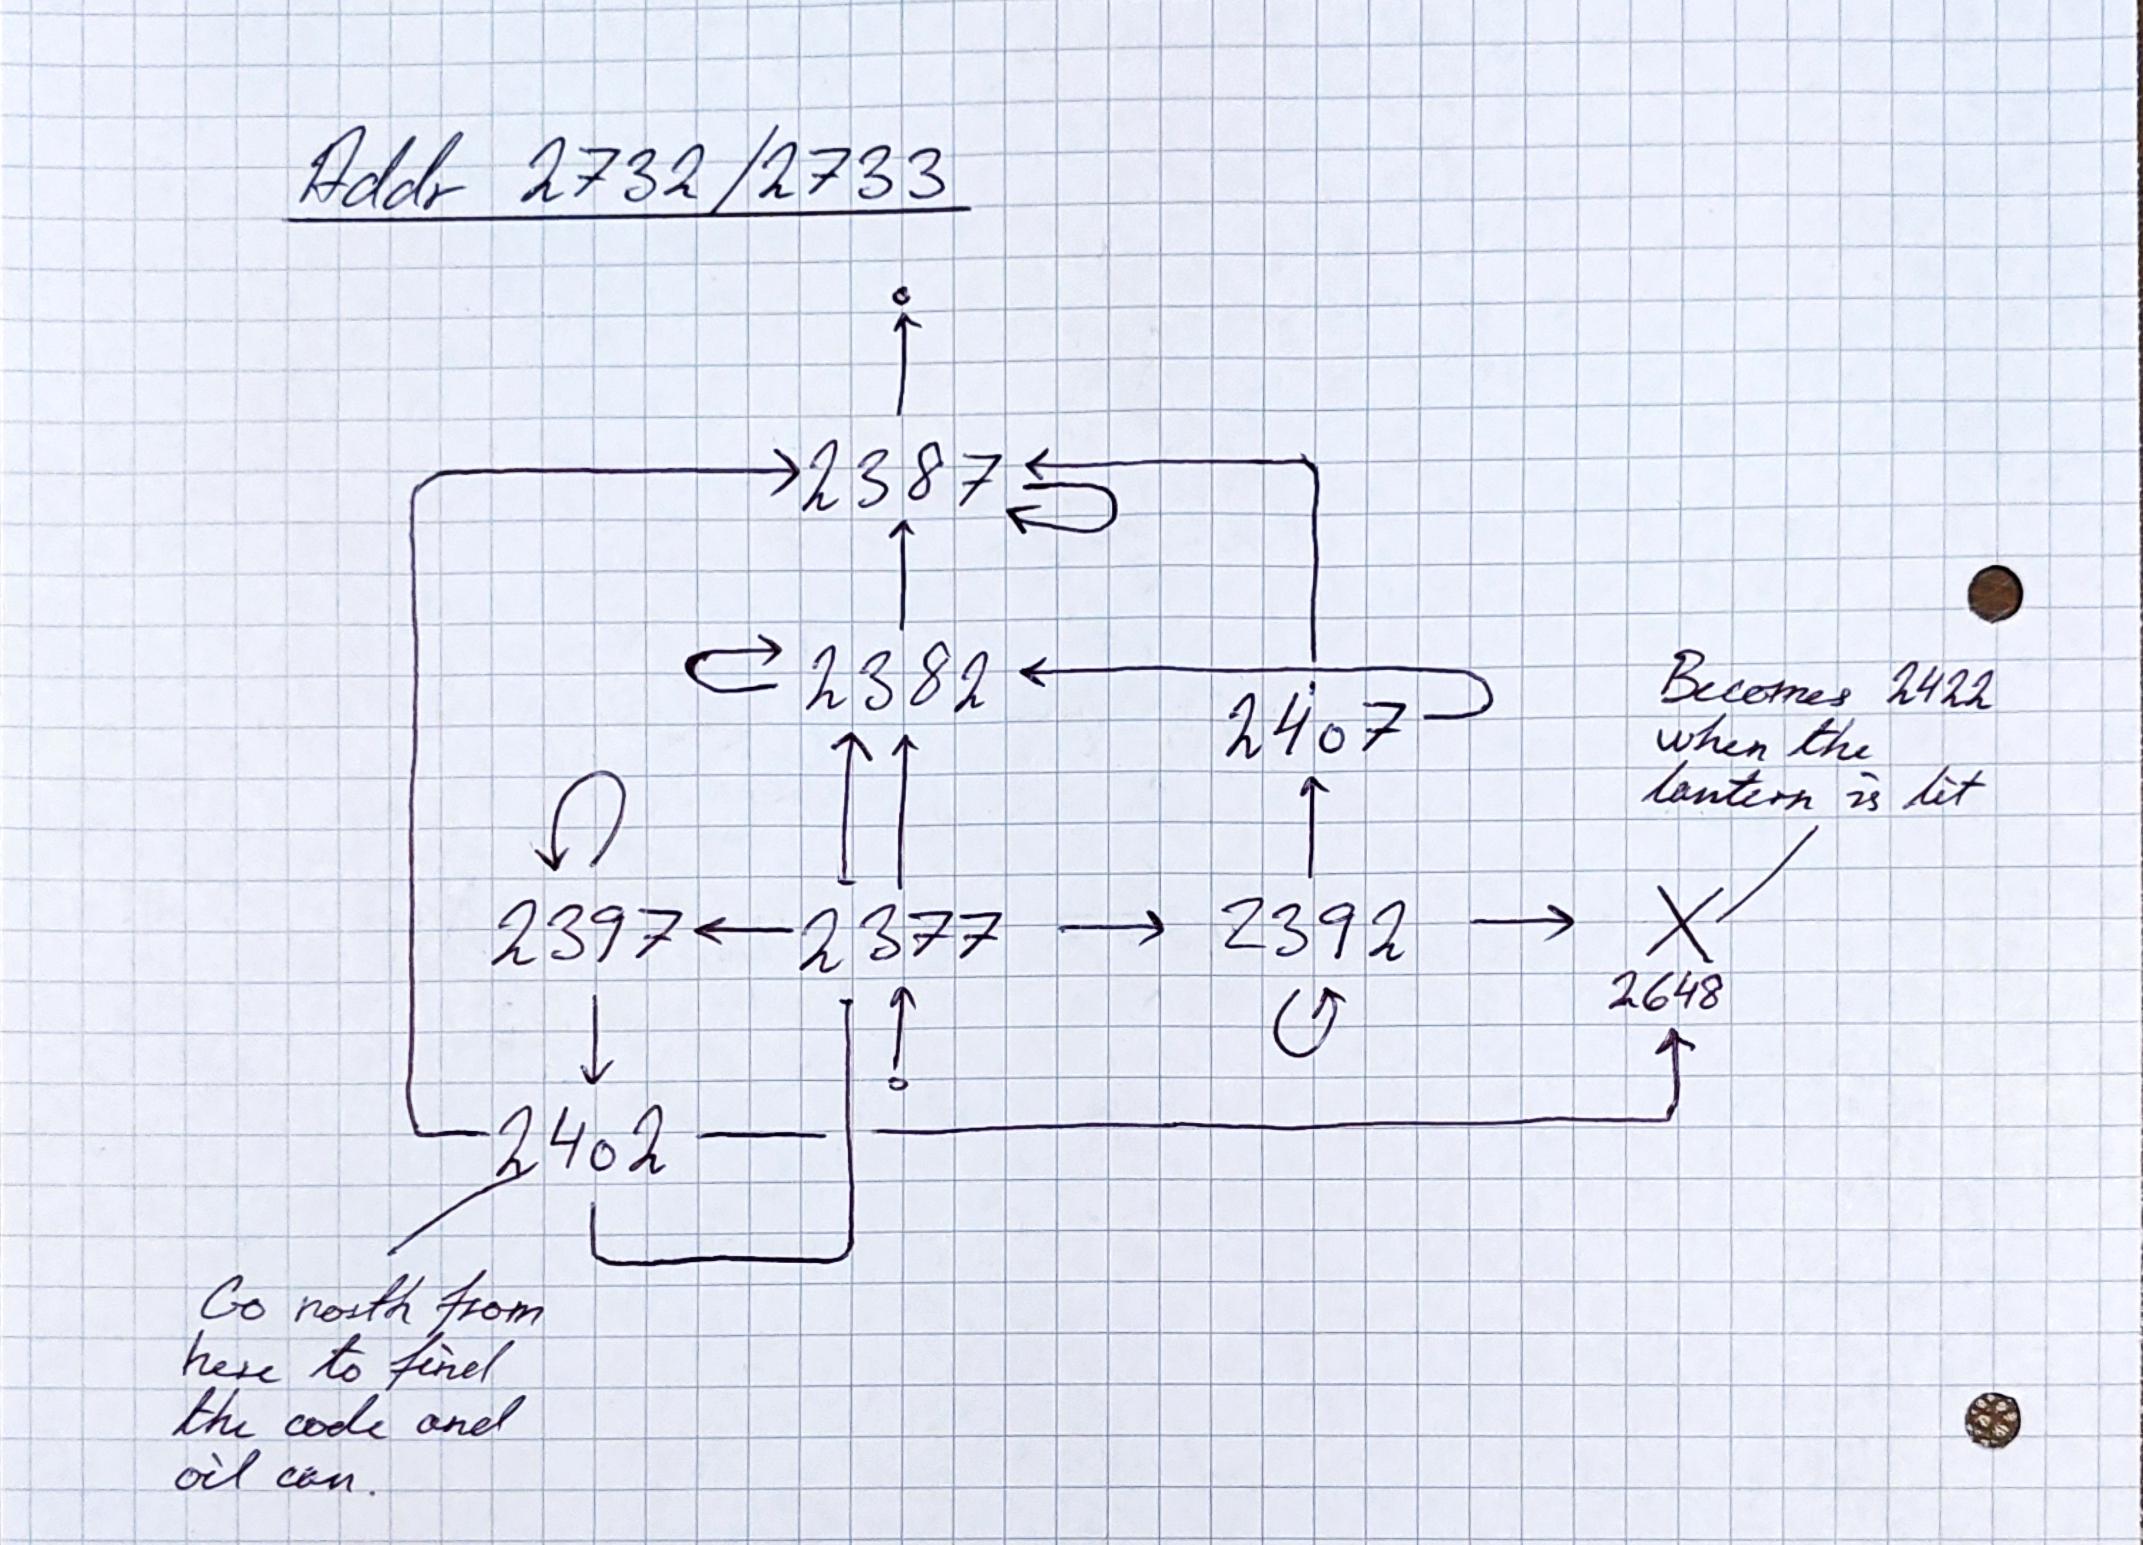 Addr 2732/2733
2387
2382
2407
Becomes 2422
when the
lantern is lit
2397
2377
2392
X
2648
2402
Go north from
here to find
the code and
oil can.